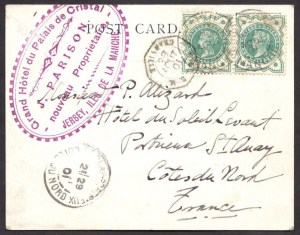 POST CARD
Grand Hôtel du Palais de Cristal
PARISOT
nouveau Propriétaire
JERSEY, ILES DE LA MANCHE
Monsieur P. Alizard
Hôtel du Soleil Levant
Portrieux St Quay
Côtes du Nord
France
29
01
DU NORD